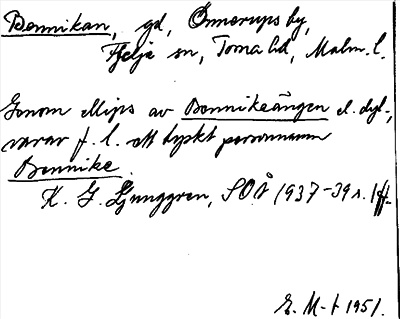 Bennikan, gd, Önnerups by,
Fjelie sn, Torna hd, Malm. l.
Genom ellips av Bennikeängen el. dyl.,
varav f. l. ett tyskt personnamn
Bennike.
K. G. Ljunggren, SOÅ 1937-39 s. 1 ff.
E. M-t 1951.